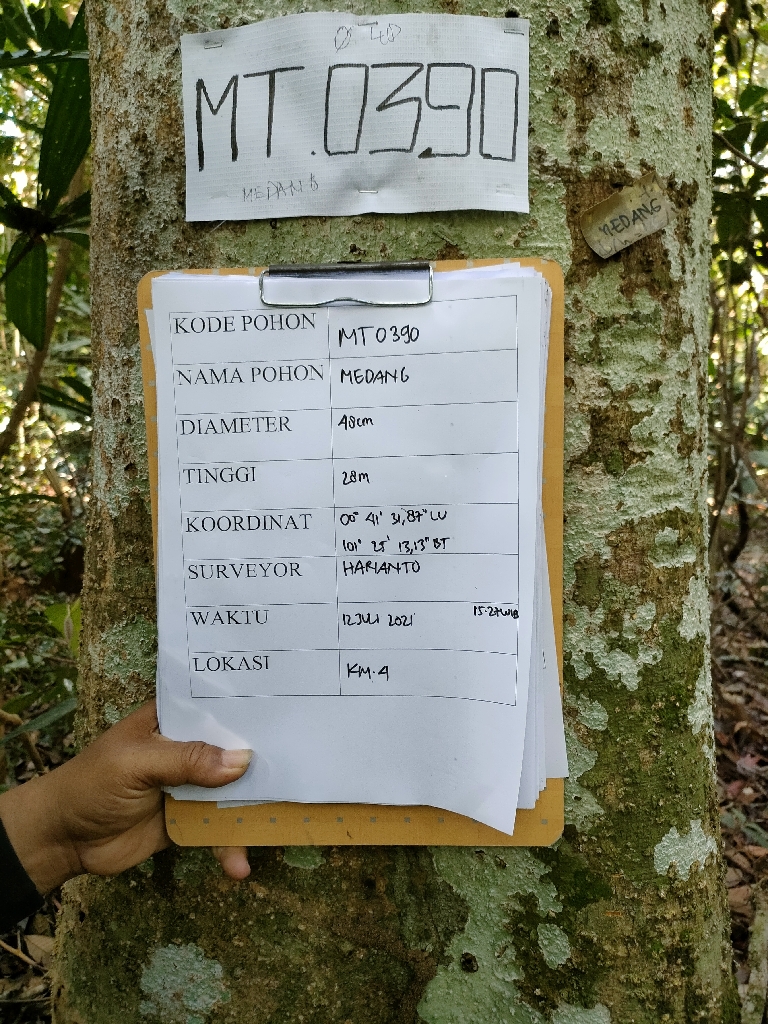 Ø 48
MT.0390
MEDANG
MEDANG
KODE POHON MT0390
NAMA POHON MEDANG
DIAMETER 48cm
TINGGI 28m
KOORDINAT 00° 41' 31,87" LU
101° 25' 13,13" BT
SURVEYOR HARIANTO
WAKTU 12 JULI 2021 15.27 WIB
LOKASI KM.4